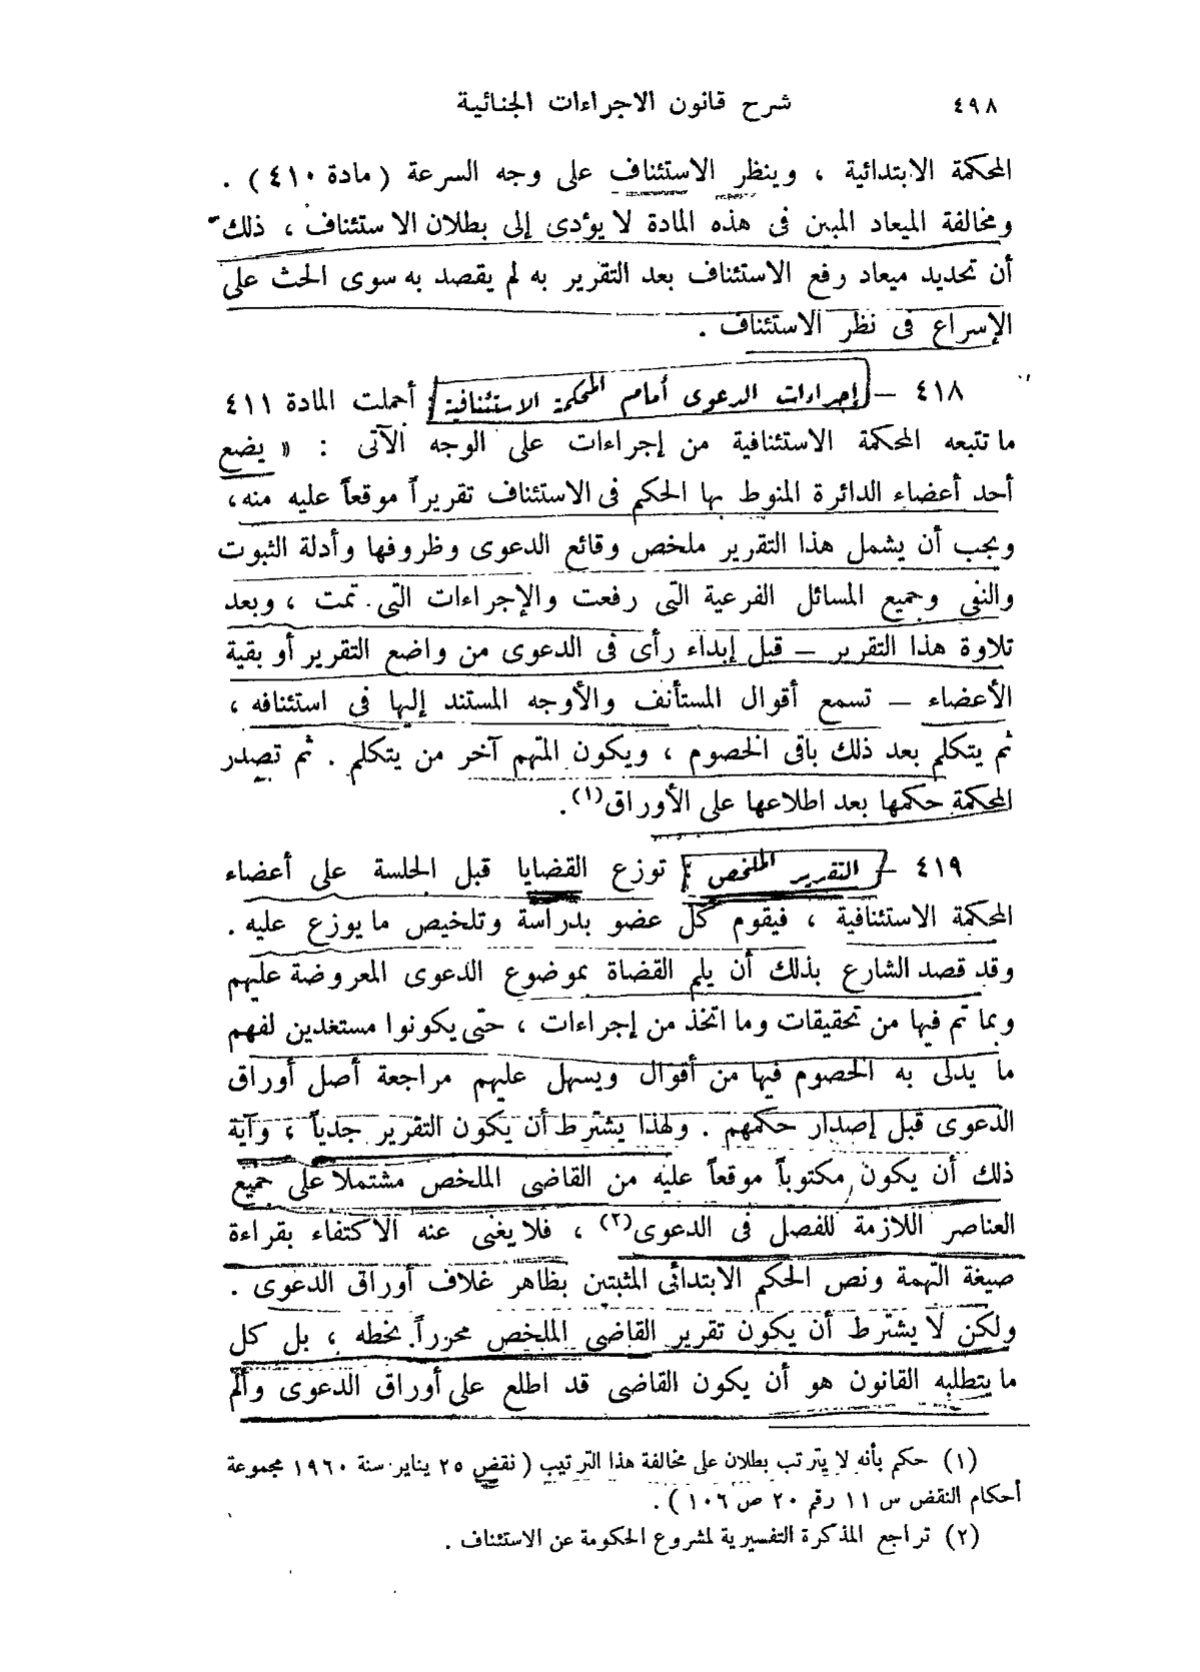 ٤٩٨ شرح قانون الاجراءات الجنائية
المحكمة الابتدائية ، وينظر الاستئناف على وجه السرعة ( مادة ٤١٠ ) .
ومخالفة الميعاد المبين فى هذه المادة لا يؤدى إلى بطلان الاستئناف ، ذلك
أن تحديد ميعاد رفع الاستئناف بعد التقرير به لم يقصد به سوى الحث على
الإسراع فى نظر الاستئناف .
٤١٨ – إجراءات الدعوى أمام المحكمة الاستئنافية : أجملت المادة ٤١١
ما تتبعه المحكمة الاستئنافية من إجراءات على الوجه الآتى : « يضع
أحد أعضاء الدائرة المنوط بها الحكم فى الاستئناف تقريراً موقعاً عليه منه ،
ويجب أن يشمل هذا التقرير ملخص وقائع الدعوى وظروفها وأدلة الثبوت
والنفى وجميع المسائل الفرعية التى رفعت والإجراءات التى تمت ، وبعد
تلاوة هذا التقرير – قبل إبداء رأى فى الدعوى من واضع التقرير أو بقية
الأعضاء – تسمع أقوال المستأنف والأوجه المستند إليها فى استئنافه ،
ثم يتكلم بعد ذلك باقى الخصوم ، ويكون المتهم آخر من يتكلم . ثم تصدر
المحكمة حكمها بعد اطلاعها على الأوراق(١) .
٤١٩ – التقرير الملخص : توزع القضايا قبل الجلسة على أعضاء
المحكمة الاستئنافية ، فيقوم كل عضو بدراسة وتلخيص ما يوزع عليه .
وقد قصد الشارع بذلك أن يلم القضاة بموضوع الدعوى المعروضة عليهم
وبما تم فيها من تحقيقات وما اتخذ من إجراءات ، حتى يكونوا مستعدين لفهم
ما يدلى به الخصوم فيها من أقوال ويسهل عليهم مراجعة أصل أوراق
الدعوى قبل إصدار حكمهم . ولهذا يشترط أن يكون التقرير جدياً ، وآية
ذلك أن يكون مكتوباً موقعاً عليه من القاضى الملخص مشتملا على جميع
العناصر اللازمة للفصل فى الدعوى(٢) ، فلا يغنى عنه الاكتفاء بقراءة
صيغة التهمة ونص الحكم الابتدائى المثبتين بظاهر غلاف أوراق الدعوى .
ولكن لا يشترط أن يكون تقرير القاضى الملخص محرراً بخطه ، بل كل
ما يتطلبه القانون هو أن يكون القاضى قد اطلع على أوراق الدعوى وألم
(١) حكم بأنه لا يترتب بطلان على مخالفة هذا الترتيب ( نقض ٢٥ يناير سنة ١٩٦٠ مجموعة
أحكام النقض س ١١ رقم ٢٠ ص ١٠٦ ) .
(٢) تراجع المذكرة التفسيرية لمشروع الحكومة عن الاستئناف .